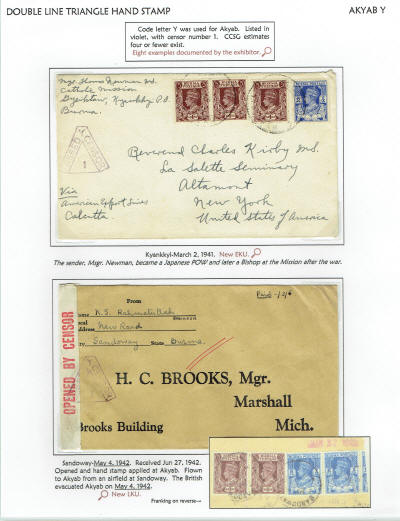 DOUBLE LINE TRIANGLE HAND STAMP
AKYAB Y
Code letter Y was used for Akyab. Listed in
violet, with censor number 1. CCSG estimates
four or fewer exist.
Eight examples documented by the exhibitor.
Msgr. Thomas Newman M.S.
Catholic Mission
Gyeiktaw, Kyaukpyu P.O.
Burma.
1
Reverend Charles Kirby M.S.
La Salette Seminary
Altamont
New York
United States of America
Via
American Export Lines
Calcutta
Kyankkyl-March 2, 1941. New EKU.
The sender, Msgr. Newman, became a Japanese POW and later a Bishop at the Mission after the war.
OPENED BY CENSOR
From
New Road
Address
Sandoway State Burma
H. C. BROOKS, Mgr.
Marshall
Brooks Building Mich.
Sandoway-May 4, 1942. Received Jun 27, 1942.
Opened and hand stamp applied at Akyab. Flown
to Akyab from an airfield at Sandoway. The British
evacuated Akyab on May 4, 1942.
New LKU.
Franking on reverse→